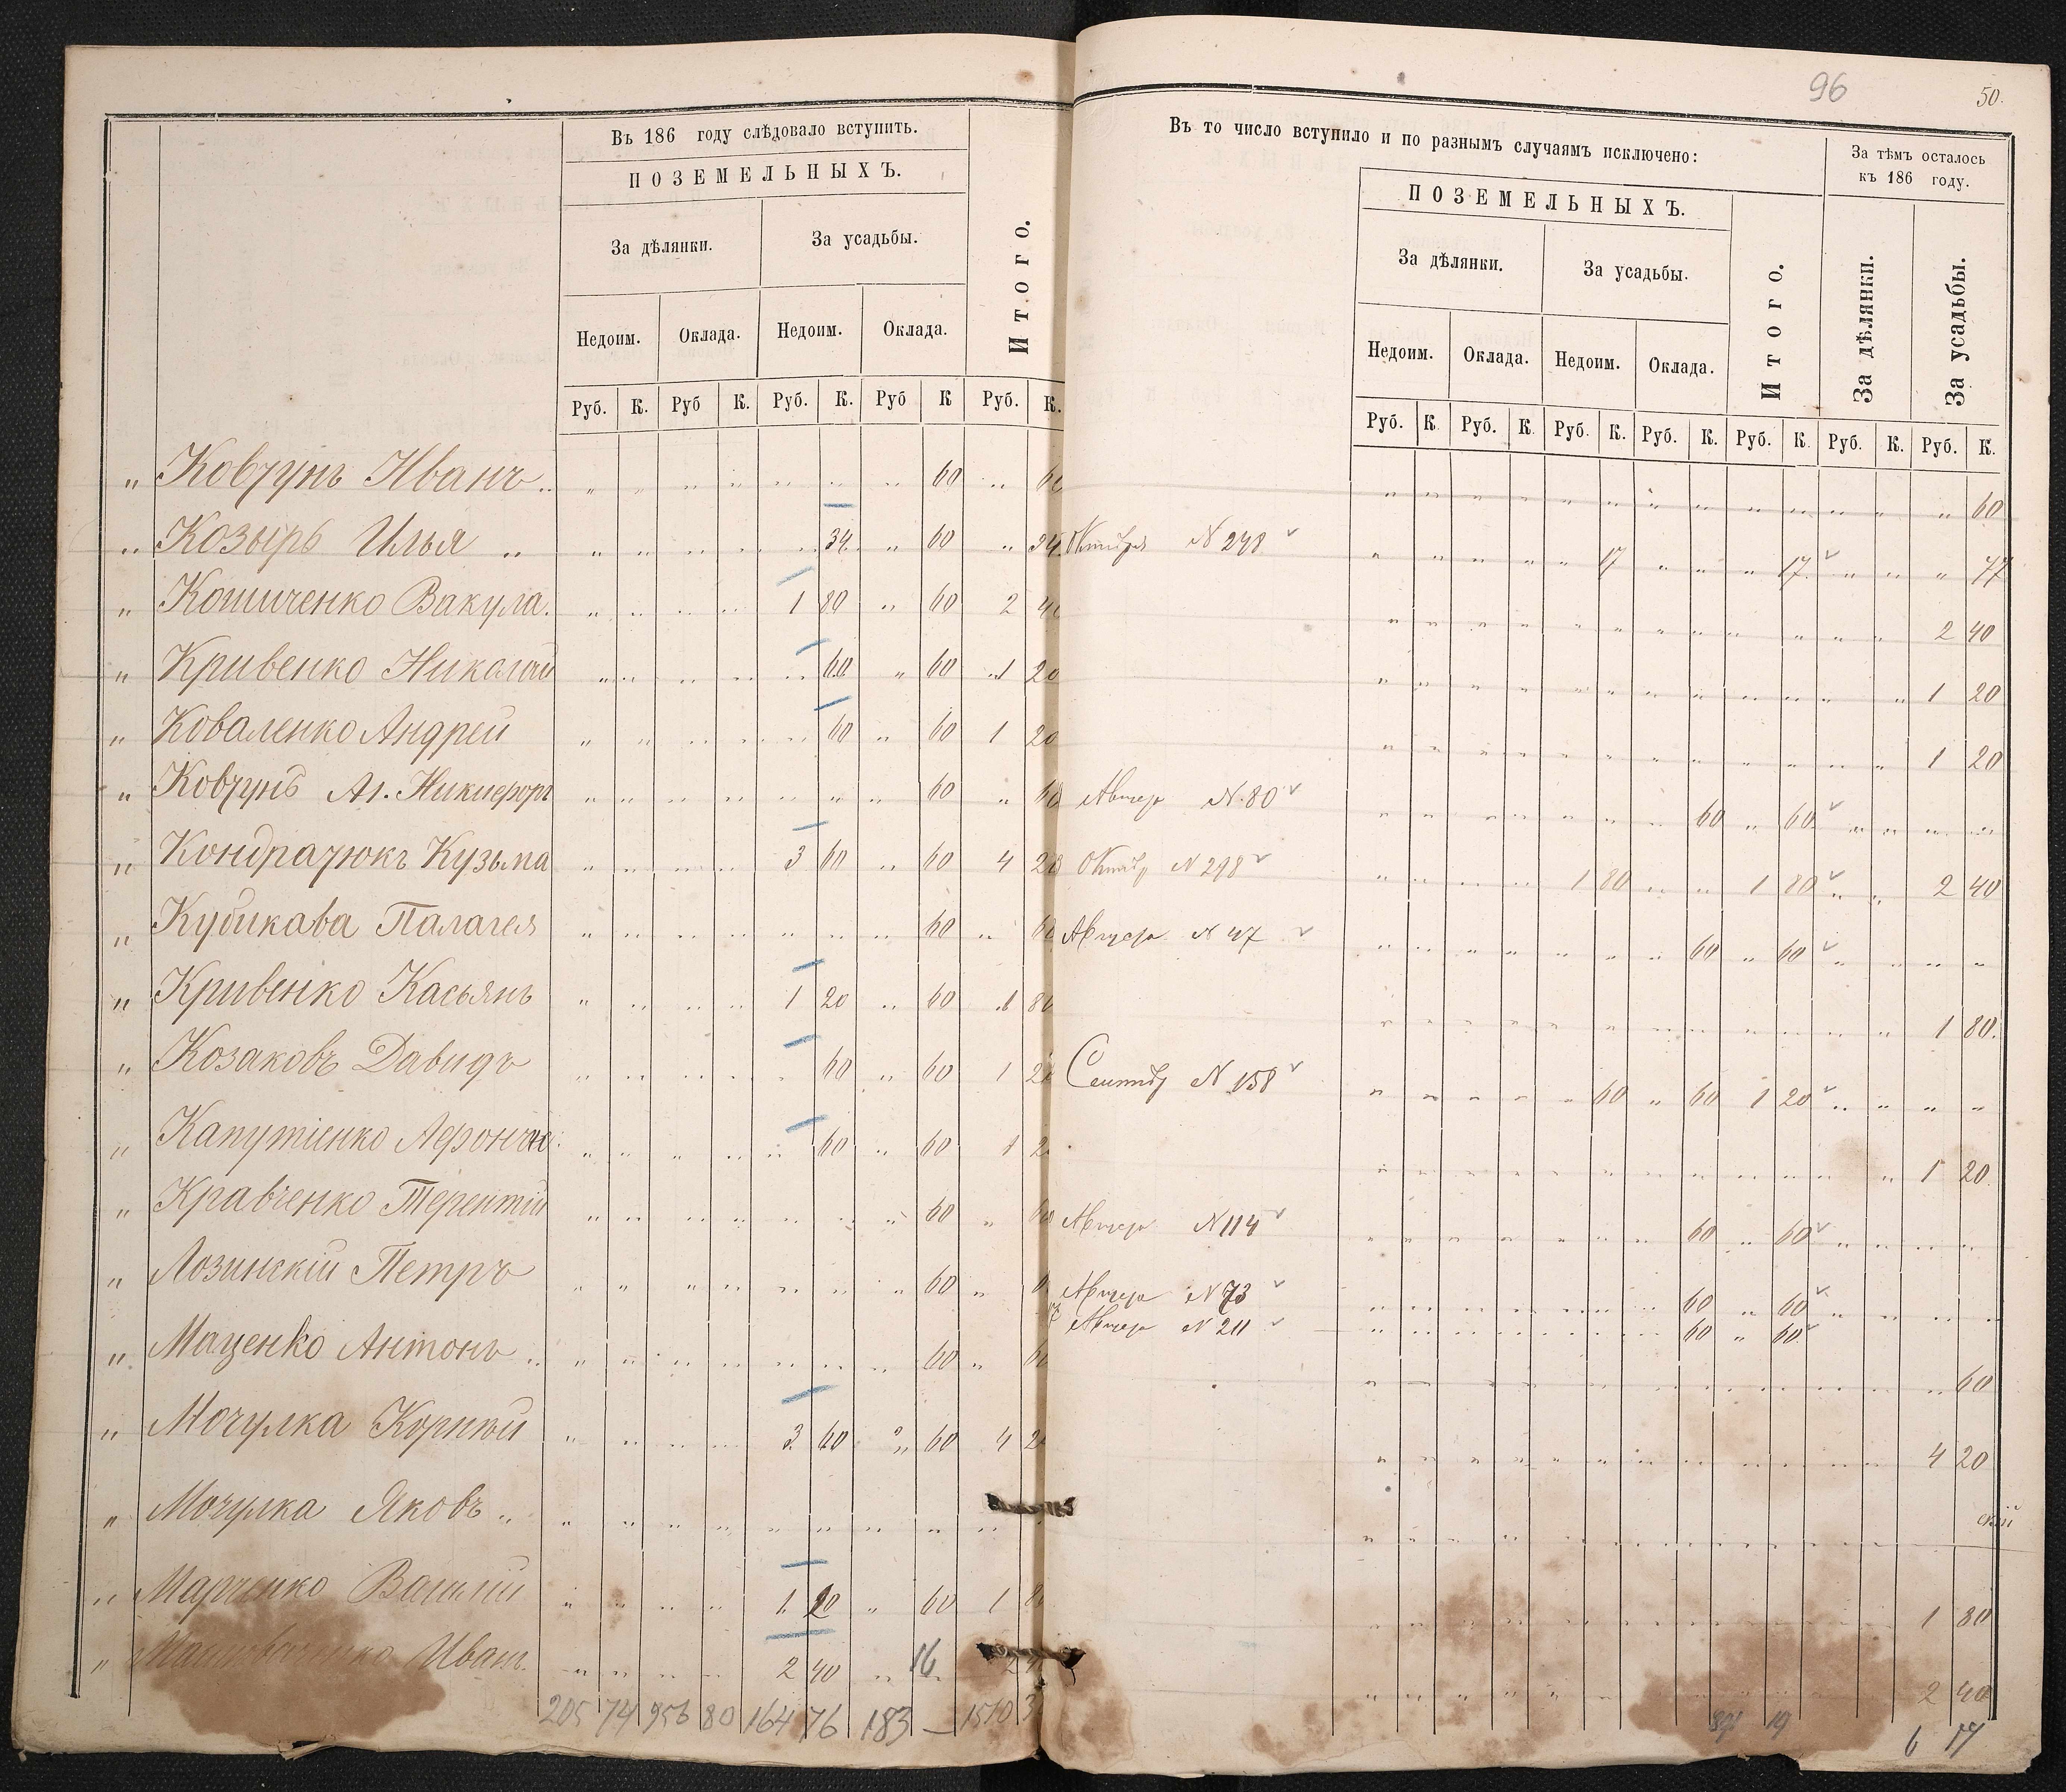 96
50.
Въ 186 году слѣдовало вступить.
ПОЗЕМЕЛЬНЫХЪ.
За дѣлянки. За усадьбы.
Итого.
Недоим. Оклада. Недоим. Оклада.
Руб. К. Руб К. Руб. К. Руб К Руб. К.
Въ то число вступило и по разнымъ случаямъ исключено:
За тѣмъ осталось
къ 186 году.
ПОЗЕМЕЛЬНЫХЪ.
За дѣлянки. За усадьбы.
Итого. За дѣлянки. За усадьбы.
Недоим. Оклада. Недоим. Оклада.
Руб. К. Руб. К. Руб. К. Руб. К. Руб. К. Руб. К. Руб. К.
" Ковтунъ Иванъ " " " " " " " 60 " 60 " " " " " " " " " " " " " 60
" Козырь Илья " " " " " 34 " 60 " 94 Октября N 248 " " " " " 17 " " " 17 " " " 77
" Кошиченко Вакула. " " " " 1 80 " 60 2 40 " " " " " " " " " " " " 2 40
" Кривенко Николай " " " " " 60 " 60 1 20 " " " " " " " " " " " " 1 20
" Коваленко Андрей " " " " " 60 " 60 1 20 " " " " " " " " " " " " 1 20
" Ковтунъ Никифоръ " " " " " " " 60 " 60 N. 80 " " " " " " " 60 " 60 " " " "
" Кондратюкъ Кузьма " " " " 3 60 " 60 4 20 Октябр N 298 " " " " 1 80 " " 1 80 " " 2 40
" Кубикава Палагея " " " " " " " 60 " 60 N 47 " " " " " " " 60 " 60 " " " "
" Кривенко Касьянъ " " " " 1 20 " 60 1 80 " " " " " " " " " " " " 1 80.
" Козаковъ Давидъ " " " " " 60 " 60 1 20 Сентябр N 158 " " " " " 60 " 60 1 20 " " " "
" Капутіенко " " " " " 60 " 60 1 2 " " " " " " " " " " " " 1 20.
" Кравченко Терентій " " " " " " " 60 " 60 N 114 " " " " " " " 60 " 60 " " " "
" Лозинскій Петръ " " " " " " " 60 " N 73 " " " " " " " 60 " 60 " " " "
N 211 " " " " " " " 60 " 60
" Маценко Антонъ " " " " " " " 60 " 60 " " " " " " " " " " " " " 60
" Мочулка Корній " " " " 3 60 " 60 4 2 " " " " " " " " " " " " 4 20
" Мочулка Яковъ " " " " " " " " " " " " " " " " " " " " " " "
скій
" Марченко Василій " " " " 1 20 " 60 1 8 " " " " " " " " " " " " 1 80
" Иванъ. " " " " 2 40 " " 2 4 " " " " " " " " " " " " 2 40
16
205 74 956 80 164 76 183 — 1510 3
19 6 17